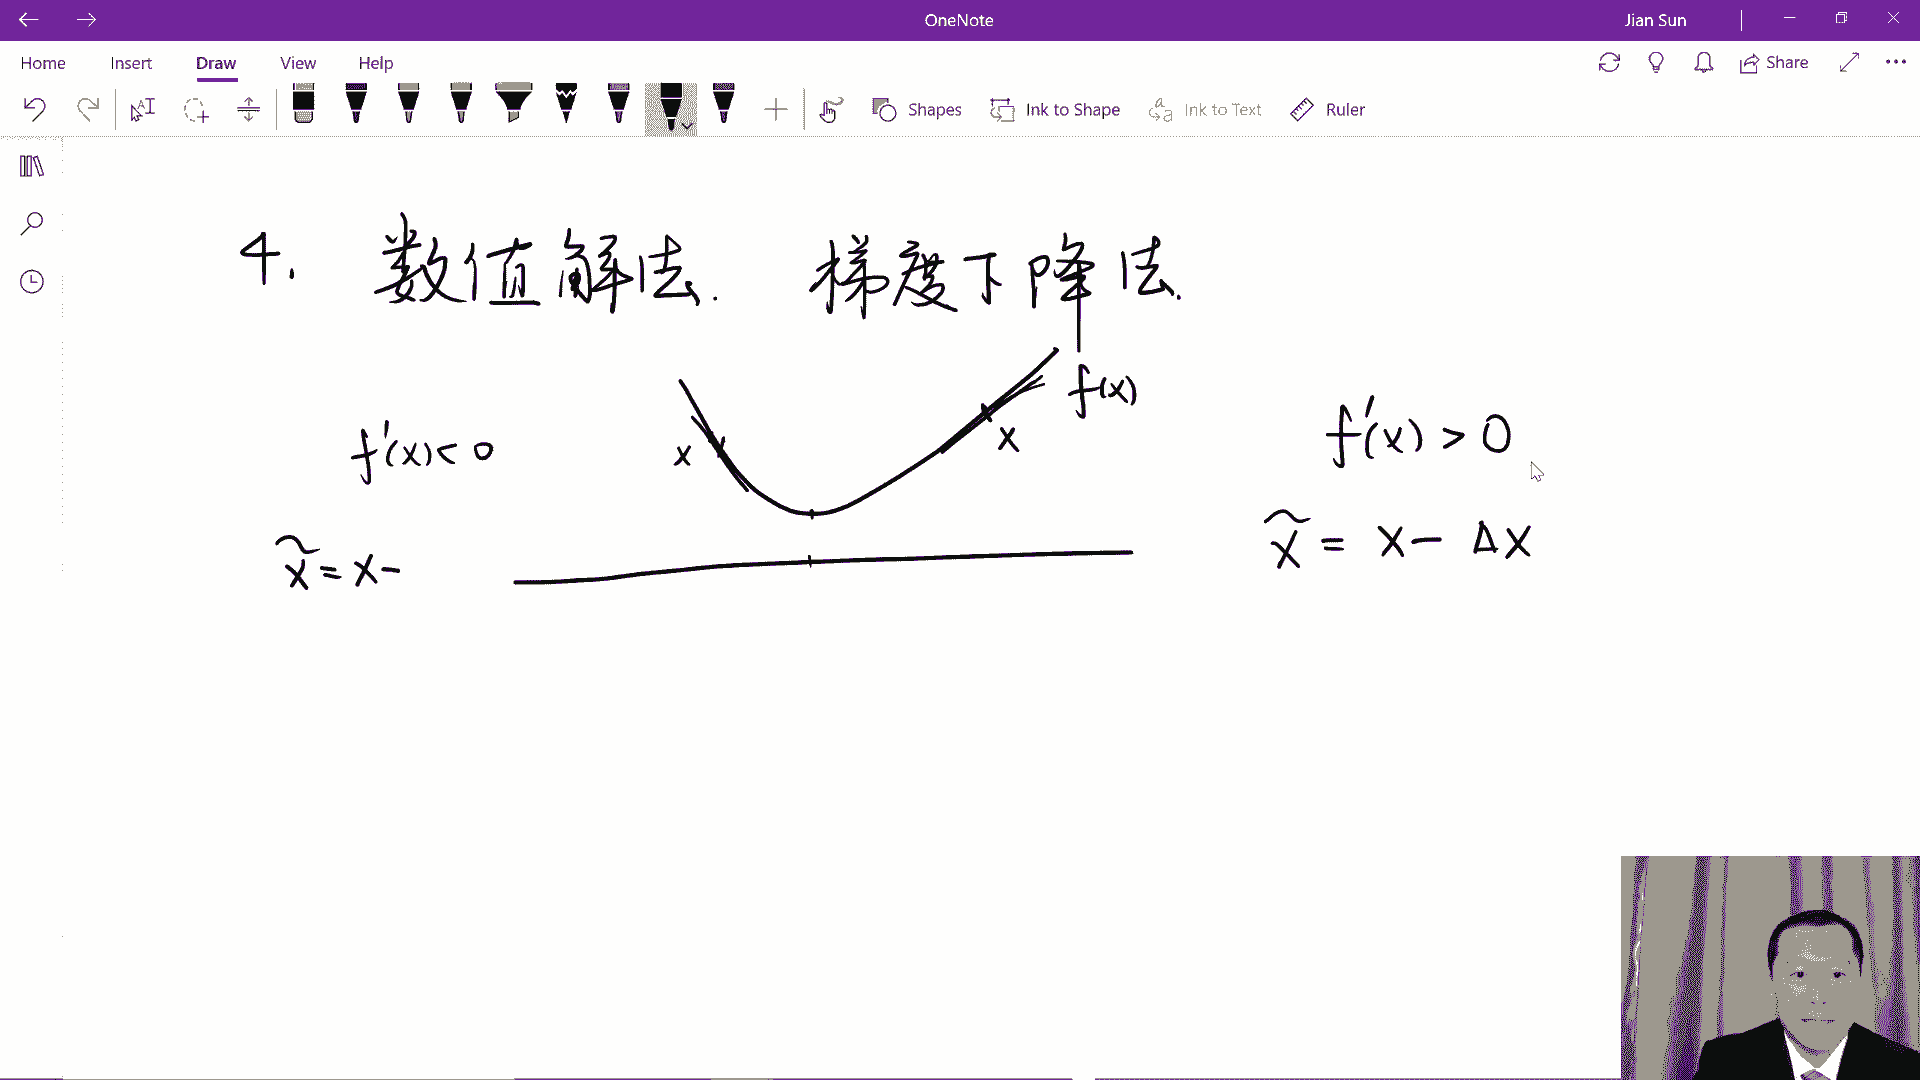 OneNote
Jian Sun
Home Insert Draw View Help
Share
Shapes Ink to Shape Ink to Text Ruler
4. 数值解法. 梯度下降法.
f(x)
f'(x)<0 x x f'(x) > 0
x̃ = x- x̃ = x- Δx